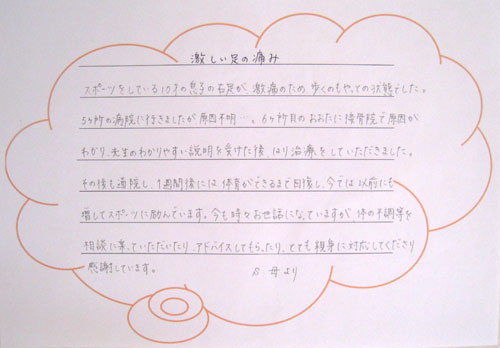 激しい足の痛み
スポーツをしている10才の息子の右足が、激痛のため、歩くのもやっとの状態でした。
5ヶ所の病院に行きましたが原因不明…。6ヶ所目のおおたに接骨院で原因が
わかり、先生のわかりやすい説明を受けた後、はり治療をしていただきました。
その後も通院し、1週間後には体育ができるまで回復し、今では以前にも
増してスポーツに励んでいます。今も時々お世話になっていますが、体の不調等を
相談に乗っていただいたり、アドバイスしてもらったり、とても親身に対応してくださり
感謝しています。 S 母より